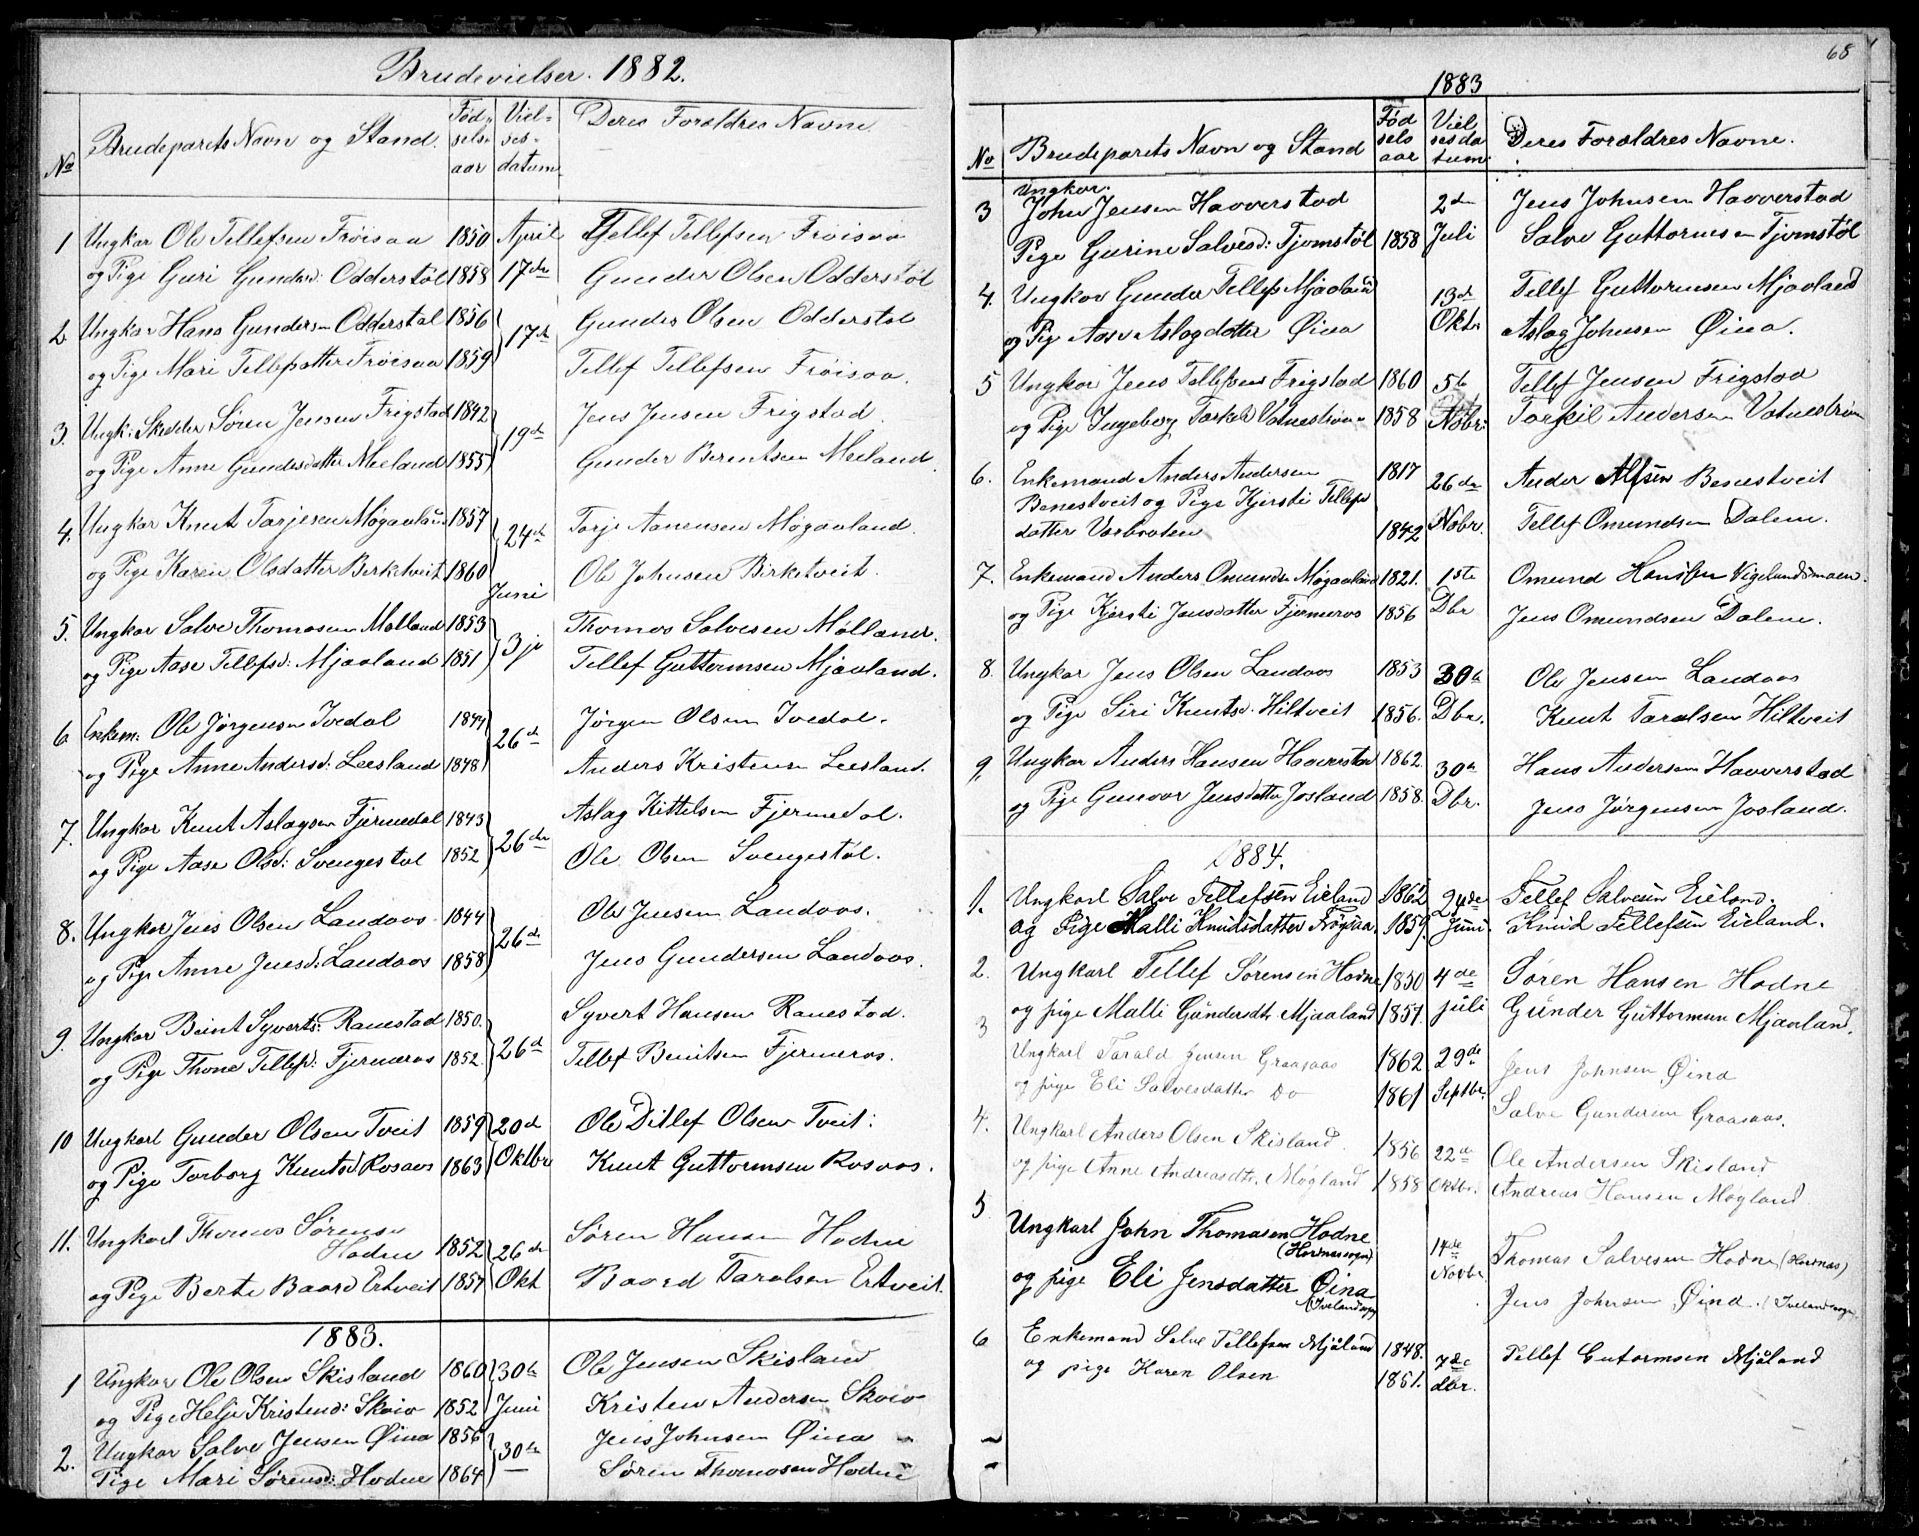 Brudevielser. 1882.
No Brudeparets Navn og Stand. Fødselsaar Vielsesdatum Deres Foreldres Navne.
1 Ungkar Ole Tellefsen Frøisaa 1850 April Tellef Tellefsen Frøisaa
og Pige Guri Gundersd: Odderstøl 1858 17de Gunder Olsen Odderstøl
2 Ungkar Hans Gundersen Odderstøl 1856 17de Gunder Olsen Odderstøl
og Pige Mari Tellefsdatter Frøisaa 1859 Tellef Tellefsen Frøisaa.
3. Ungk: Skrædder Søren Jensen Frigstad 1842 19de Jens Jensen Frigstad.
og Pige Anne Gundersdatter Meeland 1855 Gunder Berentsen Meiland.
4. Ungkar Knut Tarjesen Møgaaland 1857 24de Tarje Aanensen Møgaaland.
og Pige Karen Olsdatter Birketveit 1860 Ole Johnsen Birketveit.
Juni
5. Ungkar Salve Thomasen Molland 1853 3je Thomas Salvesen Mølland.
og Pige Aase Tellefsd: Mjaaland 1851 Tellef Guttormsen Mjaaland.
6 Enkem: Ole Jørgensen Ivedal 1844 26de Jørgen Olsen Ivedal.
og Pige Anne Andersd: Leesland 1848 Anders Kristensen Leesland.
7. Ungkar Knut Aslagsen Fjermedal 1843 26de Aslag Kittelsen Fjermedal.
og Pige Aase Olsd: Svengestøl 1852 Ole Olsen Svengestøl.
8. Ungkar Jens Olsen Landaas 1844 26de Ole Jensen Landaas.
og Pige Anne Jensd: Landaas 1858 Jens Gundersen Landaas.
9. Ungkar Beint Syverts: Ranestad 1850. 26de Syvert Hansen Ranestad.
og Pige Thone Tellefsd: Fjermeros 1852. Tellef Beintsen Fjermeros.
10 Ungkarl Gunder Olsen Tveit 1859 20de Ole Ditlef Olsen Tveit:
og Pige Torborg Knutsd Rosaas 1863 Oktbr Knut Guttormsen Rosaas.
11. Ungkarl Thomas Sørensen
Hodne 1852 26de Søren Hansen Hodne
og Pige Berte Baards Ertveit 1857 Okt Baard Taralsen Ertveit.
1883.
1 Ungkar Ole Olsen Skisland 1860 30te Ole Jensen Skisland
og Pige Helje Kristensd: Skaiaa 1852 Juni Kristen Andersen Skaiaa
2. Ungkar Salve Jensen Øina 1856 30te Jens Johnsen Øina
Pige Mari Sørensd: Hodne 1864 Søren Thomasen Hodne
68
1883
No Brudeparets Navn og Stand Fødselsaar Vielsesdatum Deres Foreldres Navne.
Ungkar.
3 John Jensen Haverstad 2den Jens Johnsen Haverstad
Pige Gurine Salvesd: Tjomstøl 1858 Juli Salve Guttormsen Tjomstøl
4. Ungkar Gunder Tellefs Mjaaland 13de Tellef Guttormsen Mjaaland
og Pig Aase Aslagdatter Øina Oktr Aslag Johnsen Øina.
5 Ungkar Jens Tellefsen Frigstad 1860 5te Tellef Jensen Frigstad
og Pige Ingeborg Tarkelsd Vatnestrøm 1858 Nobr: Tarkil Andersen Vatnestrøm
6. Enkemand Anders Andersen 1817 26de Ander Alfsen Benestveit
Benestveit og Pige Kjersti Tellefs
datter Vasbraaten 1842 Nobr. Tellef Omundsen Dalene.
7. Enkemand Anders Omunds Møgaaland 1821. 1ste Omund Hansen Vigelandsmoen.
og Pige Kjersti Jensdatter Fjermeros 1856 Dbr Jens Omundsen Dalene.
8. Ungkar Jens Olsen Landaas 1853 30te Ole Jensen Landaas
og Pige Siri Knutsd. Hiltveit 1856. Dbr. Knut Taralsen Hiltveit
9 Ungkar Anders Hansen Haverstad 1862. 30te Hans Andersen Haverstad
og Pige Gunvor Jensdatter Josland 1858. Dbr. Jens Jørgensen Josland.
1884.
1. Ungkarl Salve Tellefsen Eieland 1862 24de Tellef Salvesen Eieland.
og Pige Malli Knudsdatter Frøysaa. 1859. Juni. Knud Tellefsen Eieland.
2. Ungkarl Tellef Sørensen Hodne 1850 4de Søren Hansen Hodne
og pige Malli Gundersdtr Mjaaland 1857. juli Gunder Guttormsen Mjaaland.
3 Ungkarl Tarald Jensen Graasaas 1862 29de Jens Johnsen Øina
og pige Eli Salvesdatter Do 1861 Septbr. Salve Gundersen Graasaas.
4. Ungkarl Anders Olsen Skisland. 1856 22de Ole Andersen Skisland
og pige Anne Andreasdtr. Møgland 1858 Oktbr. Andreas Hansen Møgland
5 Ungkarl John Thomasen Hodne
(Hornnessogn) 14de Thomas Salvesen Hodne (Hornæs)
og pige Eli Jensdatter Øina Novbr.
(Ivelandsogn) Jens Johnsen Øina. (Ivelandsogn
6 Enkemand Salve Tellefsen Mjåland 1848. 7de Tellef Gutormsen Mjåland
og pige Karen Olsen 1851. dbr.